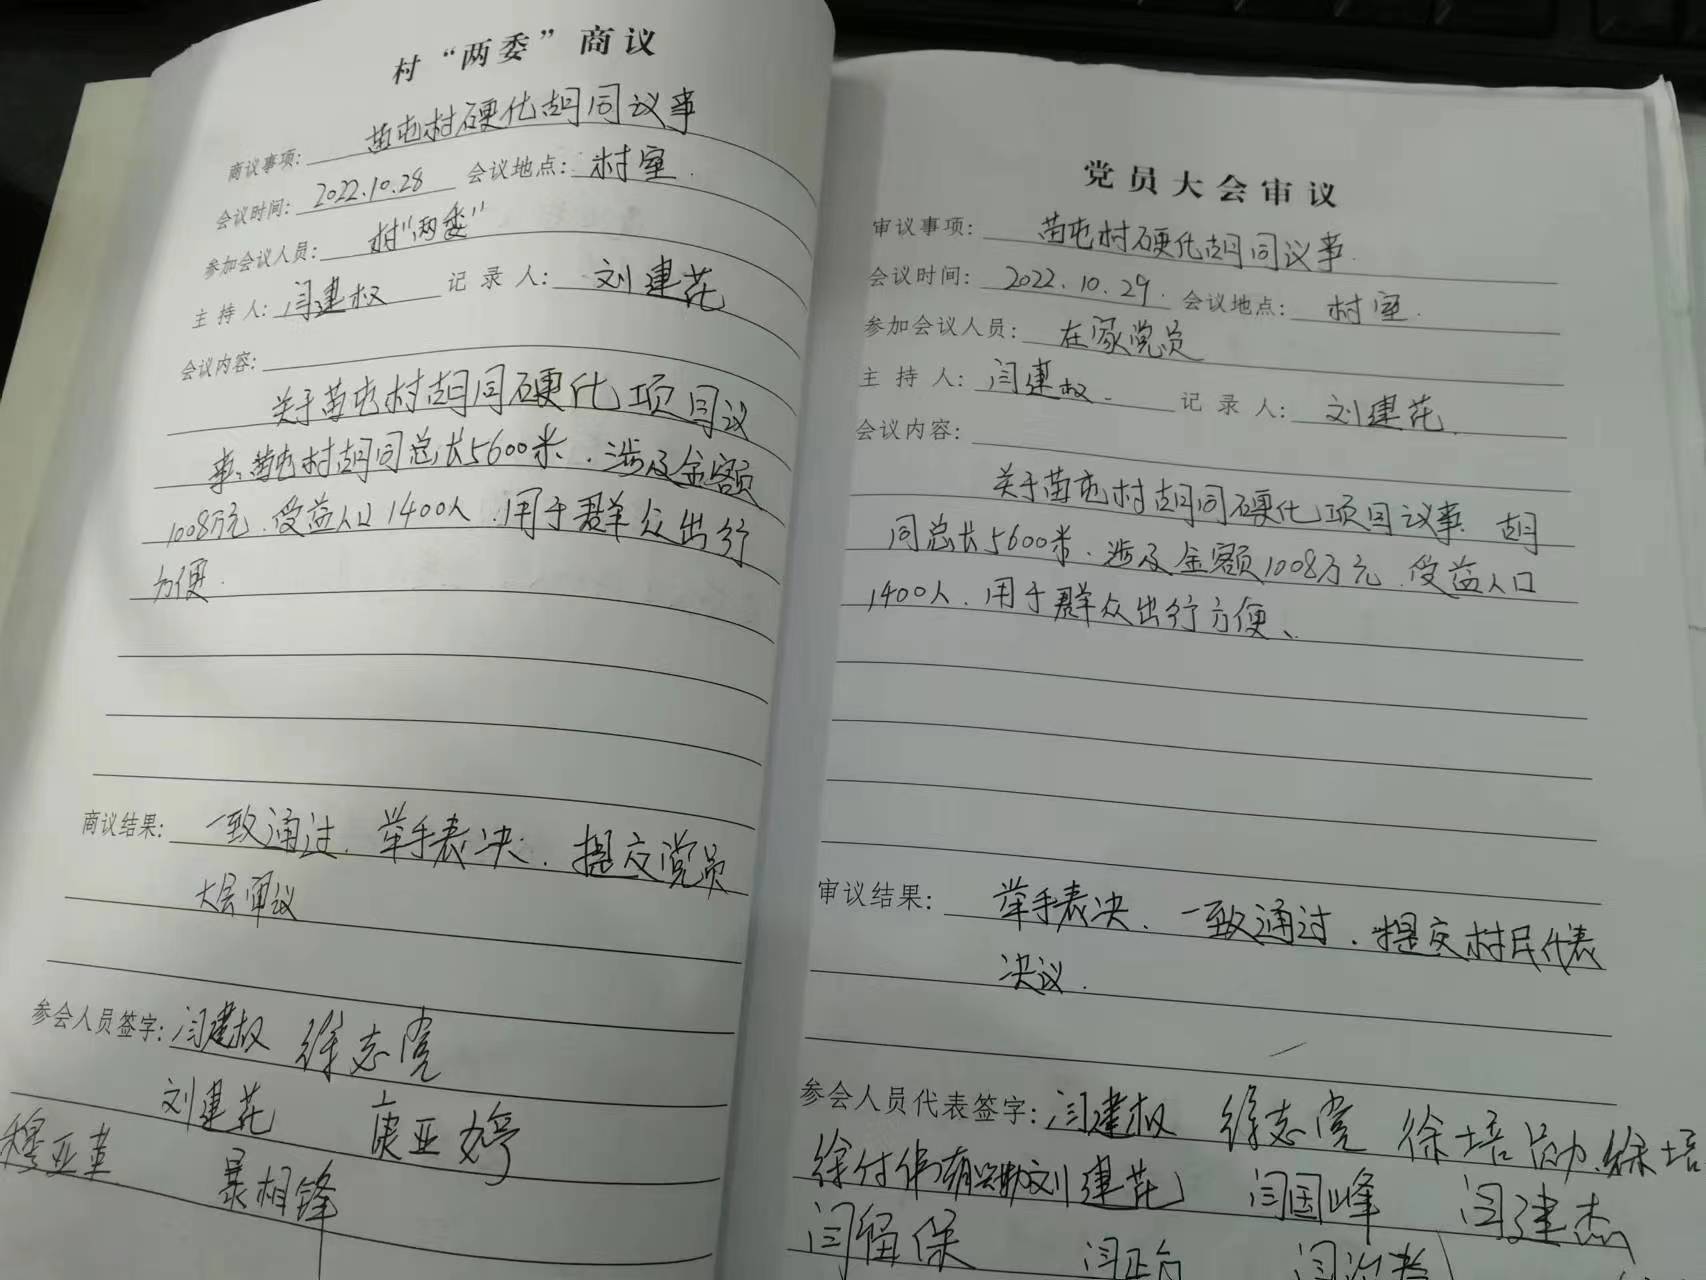 村“两委”商议
商议事项：苗屯村硬化胡同议事
会议时间：2022.10.28 会议地点：村室.
参加会议人员：村“两委”
主持人：闫建权 记录人：刘建花
会议内容：
关于苗屯村胡同硬化项目议
事：苗屯村胡同总长5600米、涉及金额
1008万元.受益人口1400人.用于群众出行
方便.
商议结果：一致通过.举手表决.提交党员
大会审议
参会人员签字：闫建权 徐志亮
刘建花 亚婷
穆亚革 暴相锋
党员大会审议
审议事项：苗屯村硬化胡同议事.
会议时间：2022.10.29. 会议地点：村室.
参加会议人员：在家党员
主持人：闫建权 记录人：刘建花
会议内容：
关于苗屯村胡同硬化项目议事.胡
同总长5600米.涉及金额1008万元.受益人口
1400人.用于群众出行方便、
审议结果：举手表决.一致通过.提交村民代表
决议.
参会人员代表签字：闫建权 徐志亮 徐培 徐培
徐付 刘建花 闫国峰 闫建杰
闫福保 闫